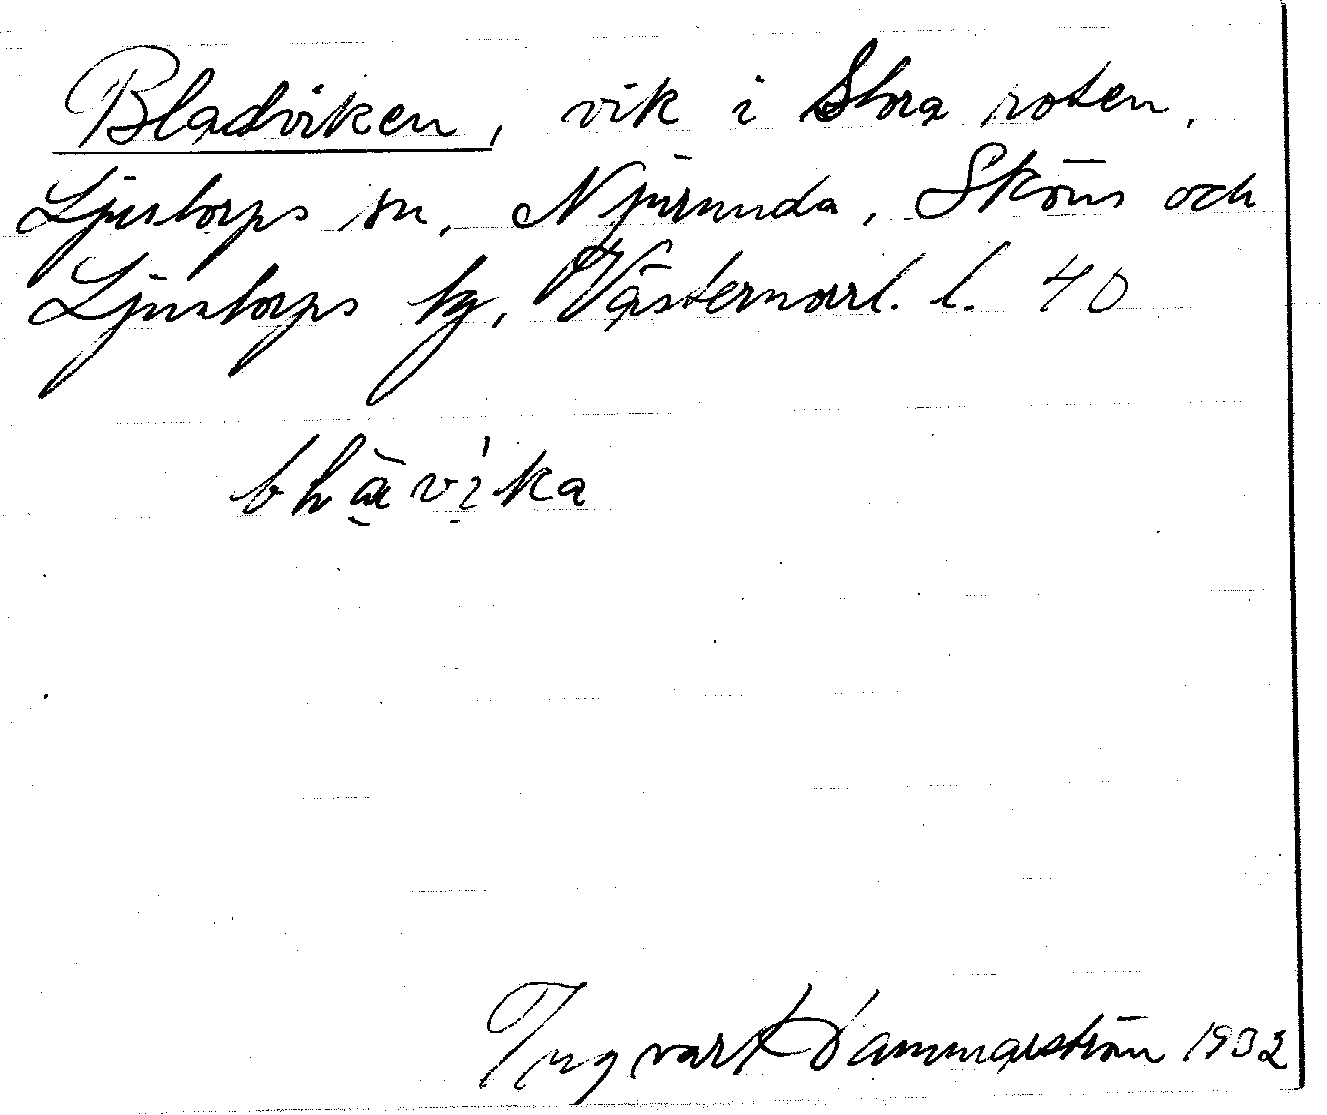 Bladviken, vik i Stora roten,
Ljustorps sn, Njurunda, Sköns och
Ljustorps tg, Västernorrl. l. 40
Ingvar Hammarström 1932